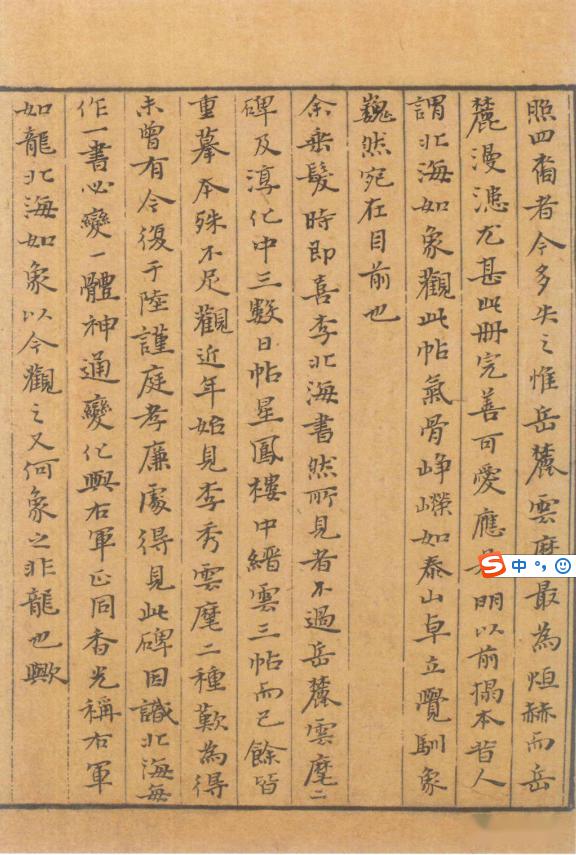 照四裔者今多失之惟岳麓雲麾最為烜赫而岳
麓漫漶尤甚此冊完善可愛應是明以前搨本昔人
謂北海如象觀此帖氣骨崢嶸如泰山卓立覺馴象
巍然宛在目前也
余垂髮時即喜李北海書然所見者不過岳麓雲麾二
碑及淳化中三數日帖星鳳樓中縉雲三帖而已餘皆
重摹本殊不足觀近年始見李秀雲麾二種歎為得
未曾有今復于陸謹庭孝廉處得見此碑因識北海每
作一書必變一體神通變化與右軍正同香光稱右軍
如龍北海如象以今觀之又何象之非龍也歟
中